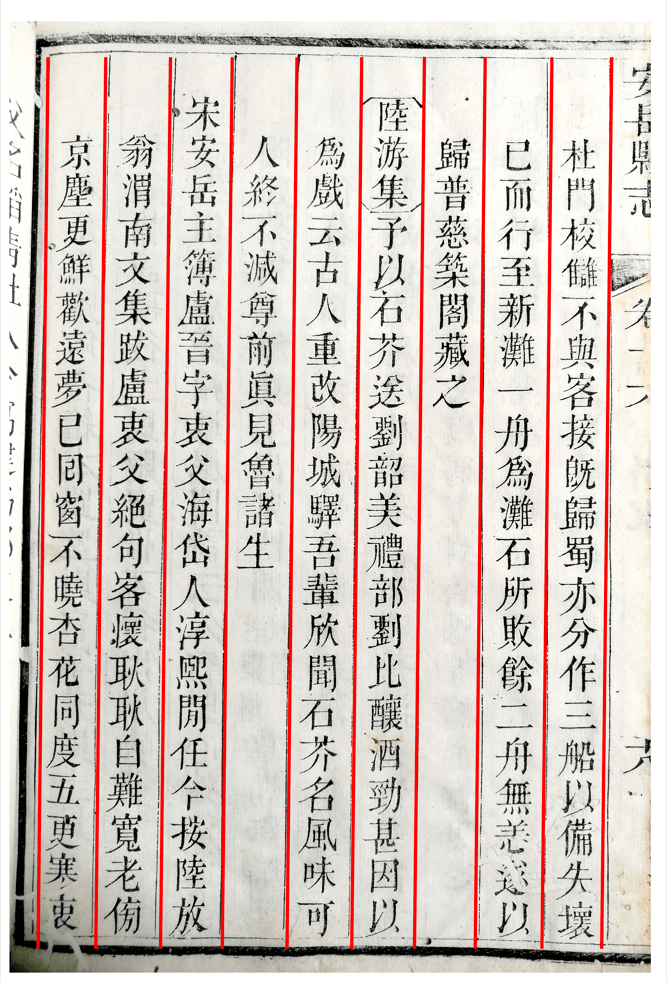 安岳縣志
卷十六
杜門校讎不與客接旣歸蜀亦分作三船以備失壞
已而行至新灘一舟爲灘石所敗餘二舟無恙遂以
歸普慈築閣藏之
陸游集予以石芥送劉韶美禮部劉比釀酒勁甚因以
爲戲云古人重改陽城驛吾輩欣聞石芥名風味可
人終不減尊前眞見魯諸生
宋安岳主簿盧晉字衷父海岱人淳熙閒任今按陸放
翁渭南文集跋盧衷父絕句客懷耿耿自難寬老傍
京塵更鮮歡遠夢已囘窗不曉杏花同度五更寒衷